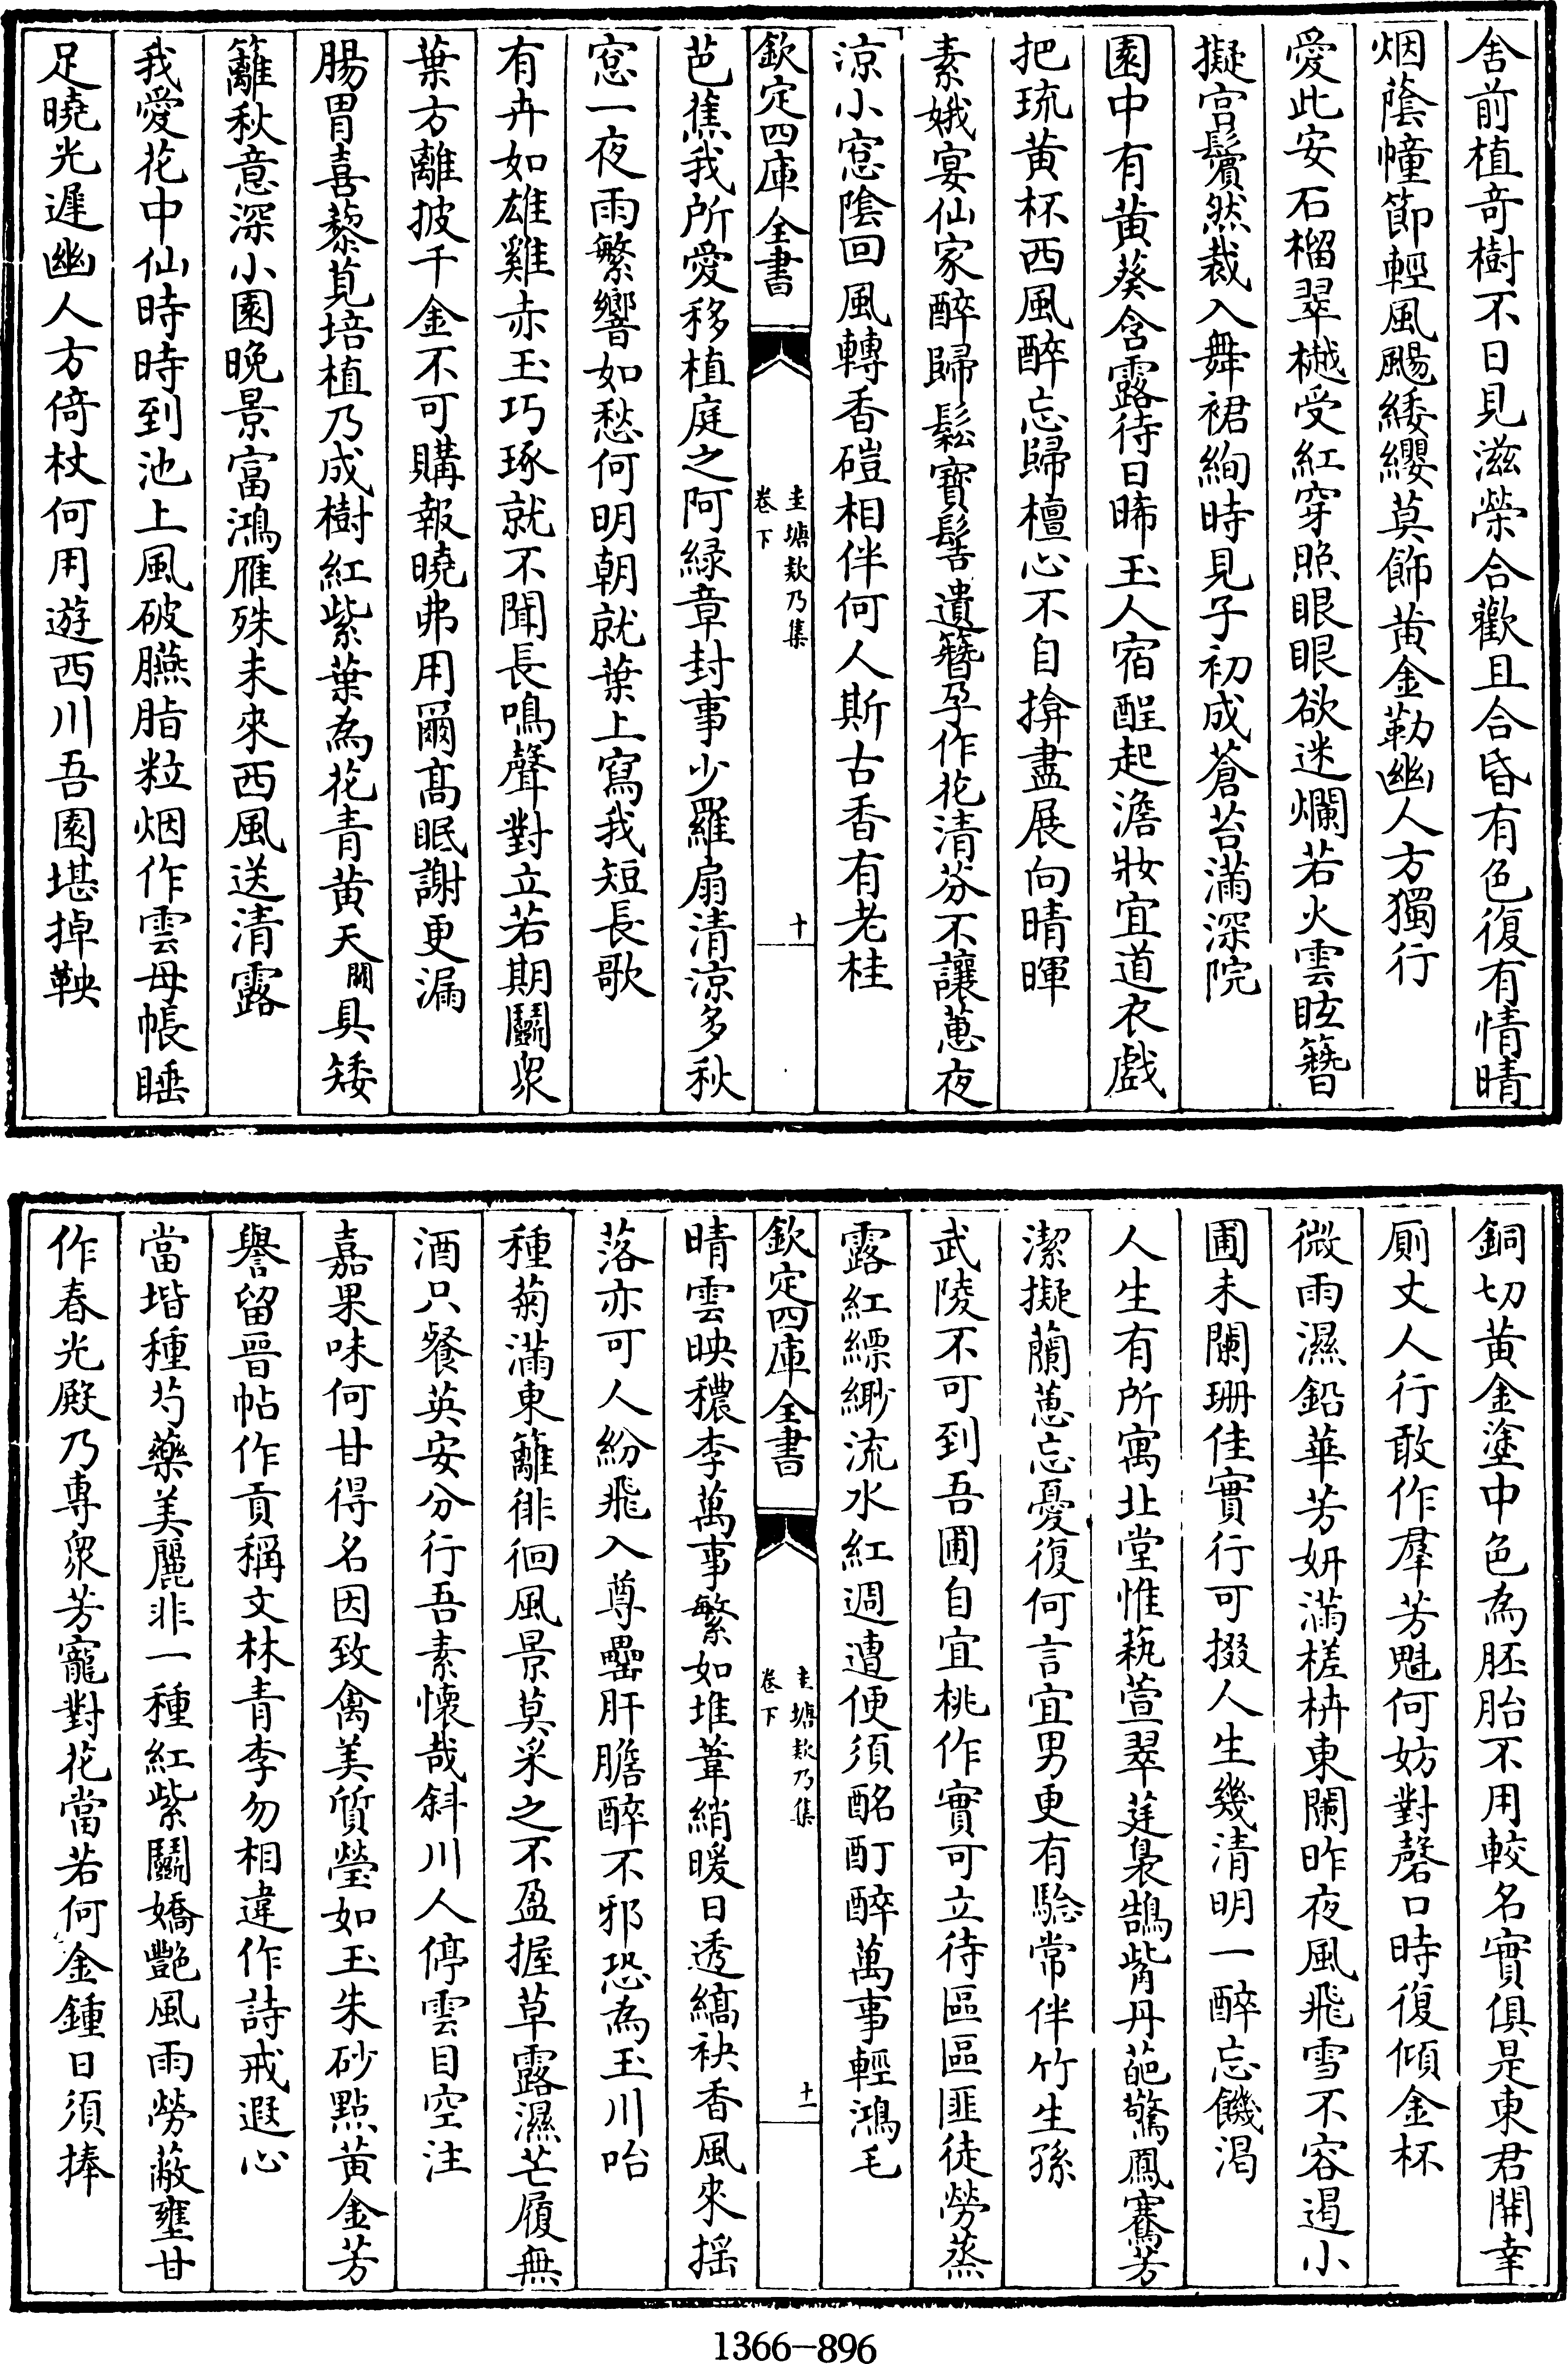 舍前植奇樹不日見滋榮合歡且合昏有色復有情晴
烟蔭幢節輕風颺緌纓莫飾黄金勒幽人方獨行
愛此安石榴翠樾受紅穿照眼眼欲迷爛若火雲眩簪
擬宫鬟然裁入舞裙絢時見子初成蒼苔滿深院
園中有黄葵含露待日晞玉人宿酲起澹妝宜道衣戲
把琉黄杯西風醉忘歸檀心不自揜盡展向晴暉
素娥宴仙家醉歸鬆寳髻遺簪孕作花清芬不讓蕙夜
涼小窓陰回風轉香磑相伴何人斯古香有老桂
欽定四庫全書
圭塘欵乃集
卷下
十
芭蕉我所愛移植庭之阿緑章封事少羅扇清涼多秋
窓一夜雨繁響如愁何明朝就葉上寫我短長歌
有卉如雄雞赤玉巧琢就不聞長鳴聲對立若期鬭衆
葉方離披千金不可購報曉弗用爾髙眠謝更漏
腸胃喜藜莧培植乃成樹紅紫葉為花青黄天開具矮
籬秋意深小園晚景富鴻雁殊未來西風送清露
我愛花中仙時時到池上風破臙脂粒烟作雲母帳睡
足曉光遲幽人方倚杖何用遊西川吾園堪掉鞅
銅切黄金塗中色為胚胎不用較名實俱是東君開幸
厠丈人行敢作羣芳魁何妨對磬口時復傾金杯
微雨濕鉛華芳妍滿槎枿東闌昨夜風飛雪不容遏小
圃未闌珊佳實行可掇人生幾清明一醉忘饑渴
人生有所寓北堂惟蓺萱翠莛裊鵠觜丹葩驚鳳騫芳
潔擬蘭蕙忘憂復何言宜男更有驗常伴竹生孫
武陵不可到吾圃自宜桃作實可立待區區匪徒勞蒸
露紅縹緲流水紅週遭便須酩酊醉萬事輕鴻毛
欽定四庫全書
圭塘欵乃集
卷下
十一
晴雲映穠李萬事繁如堆葦綃暖日透縞袂香風來揺
落亦可人紛飛入尊罍肝膽醉不邪恐為玉川咍
種菊滿東籬徘徊風景莫采之不盈握草露濕芒履無
酒只餐英安分行吾素懷哉斜川人停雲目空注
嘉果味何甘得名因致禽美質瑩如玉朱砂點黄金芳
譽留晉帖作貢稱文林青李勿相違作詩戒遐心
當堦種芍藥美麗非一種紅紫鬭嬌艶風雨勞蔽壅甘
作春光殿乃專衆芳寵對花當若何金鍾日須捧
1366-896